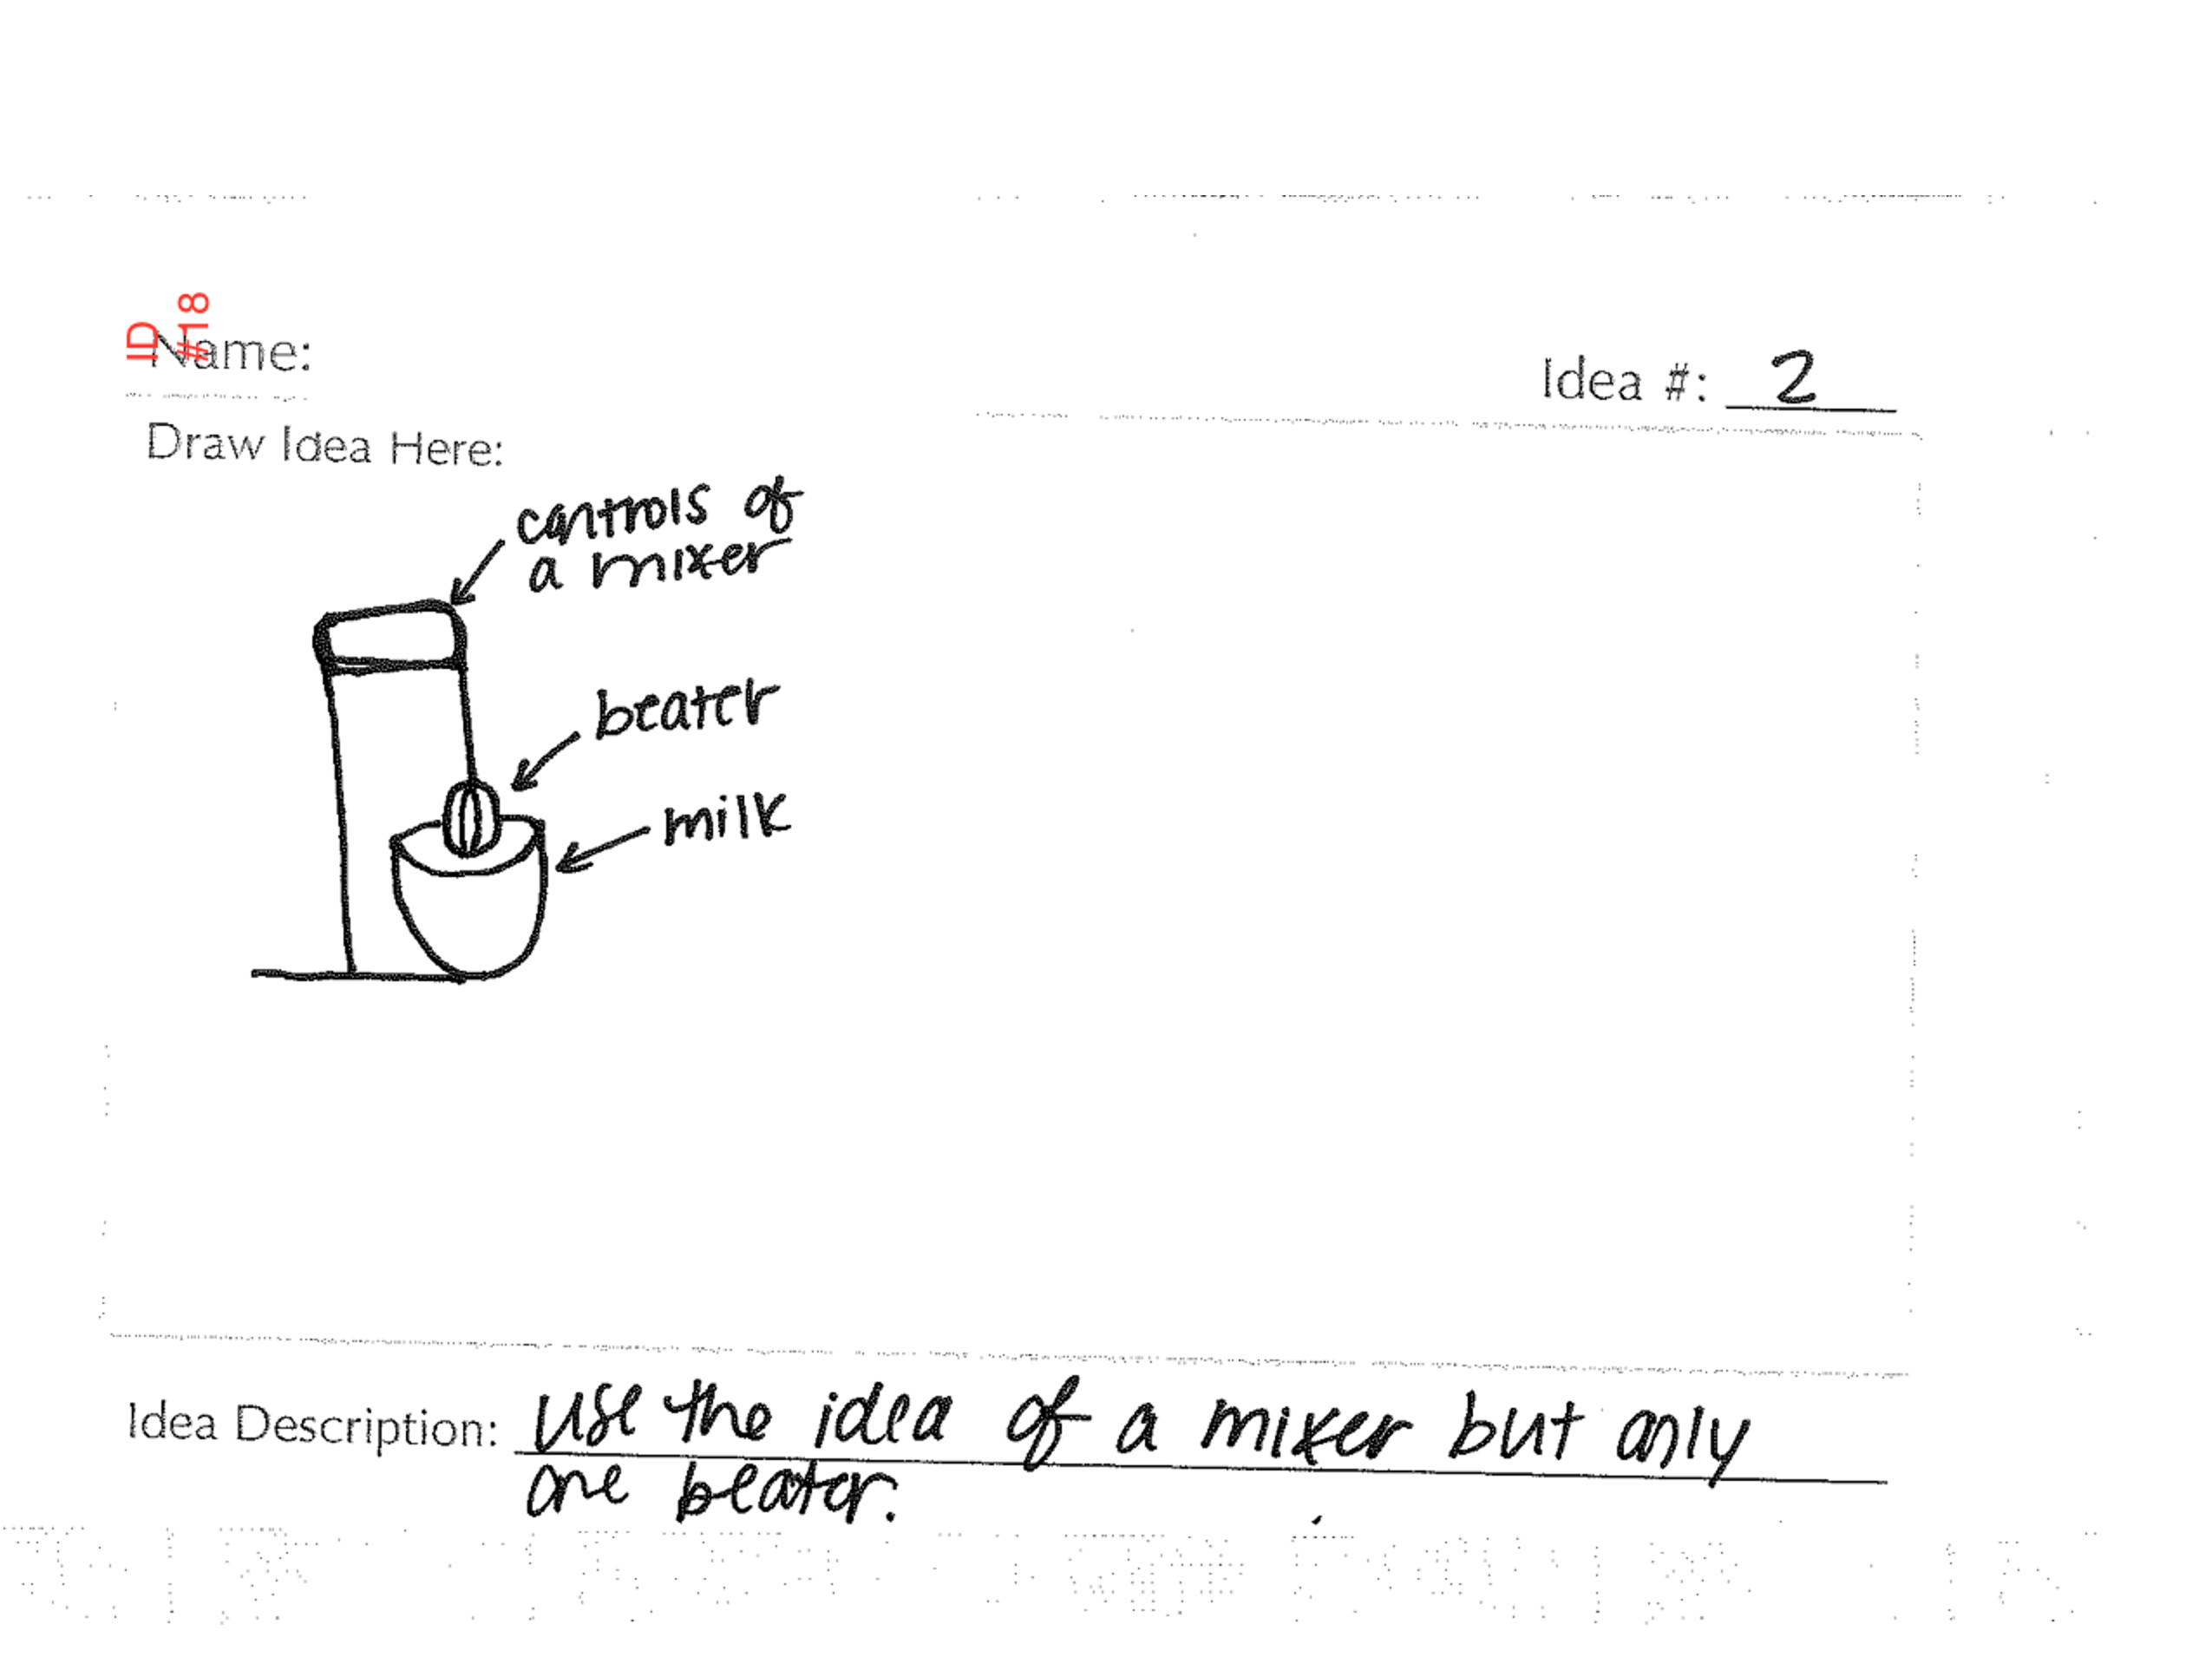 ID
#18
Name:
Idea #: 2
Draw Idea Here:
controls of
a mixer
beater
milk
Idea Description: use the idea of a mixer but only
one beater.